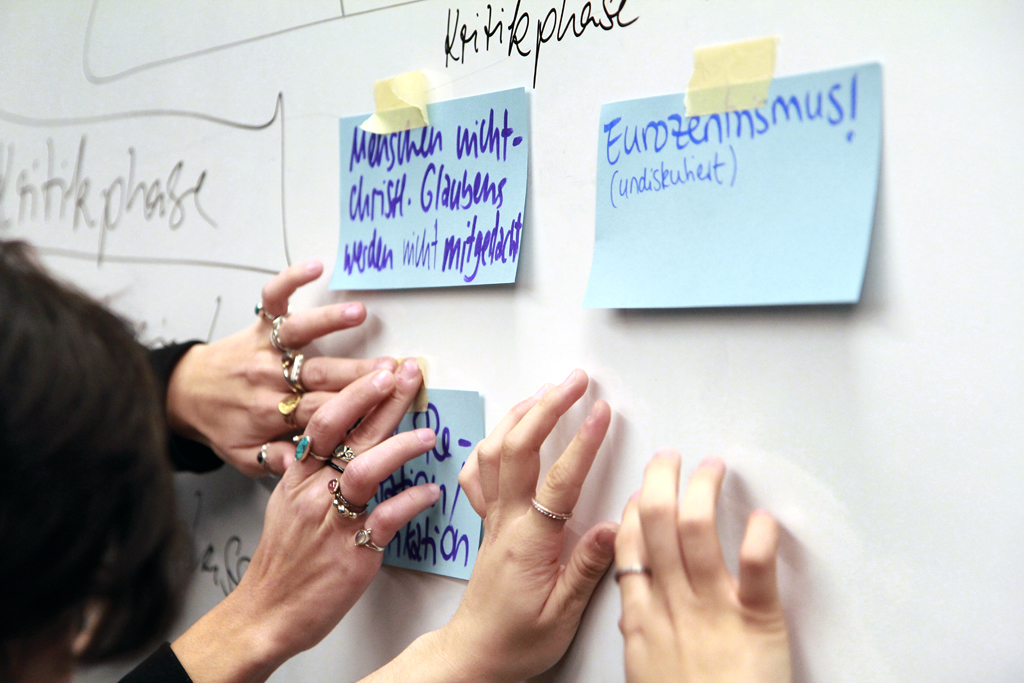 Kritikphase
Kritikphase
Menschen nicht-
christl. Glaubens
werden nicht mitgedacht
Eurozentrismus!
(undiskutiert)
Re-